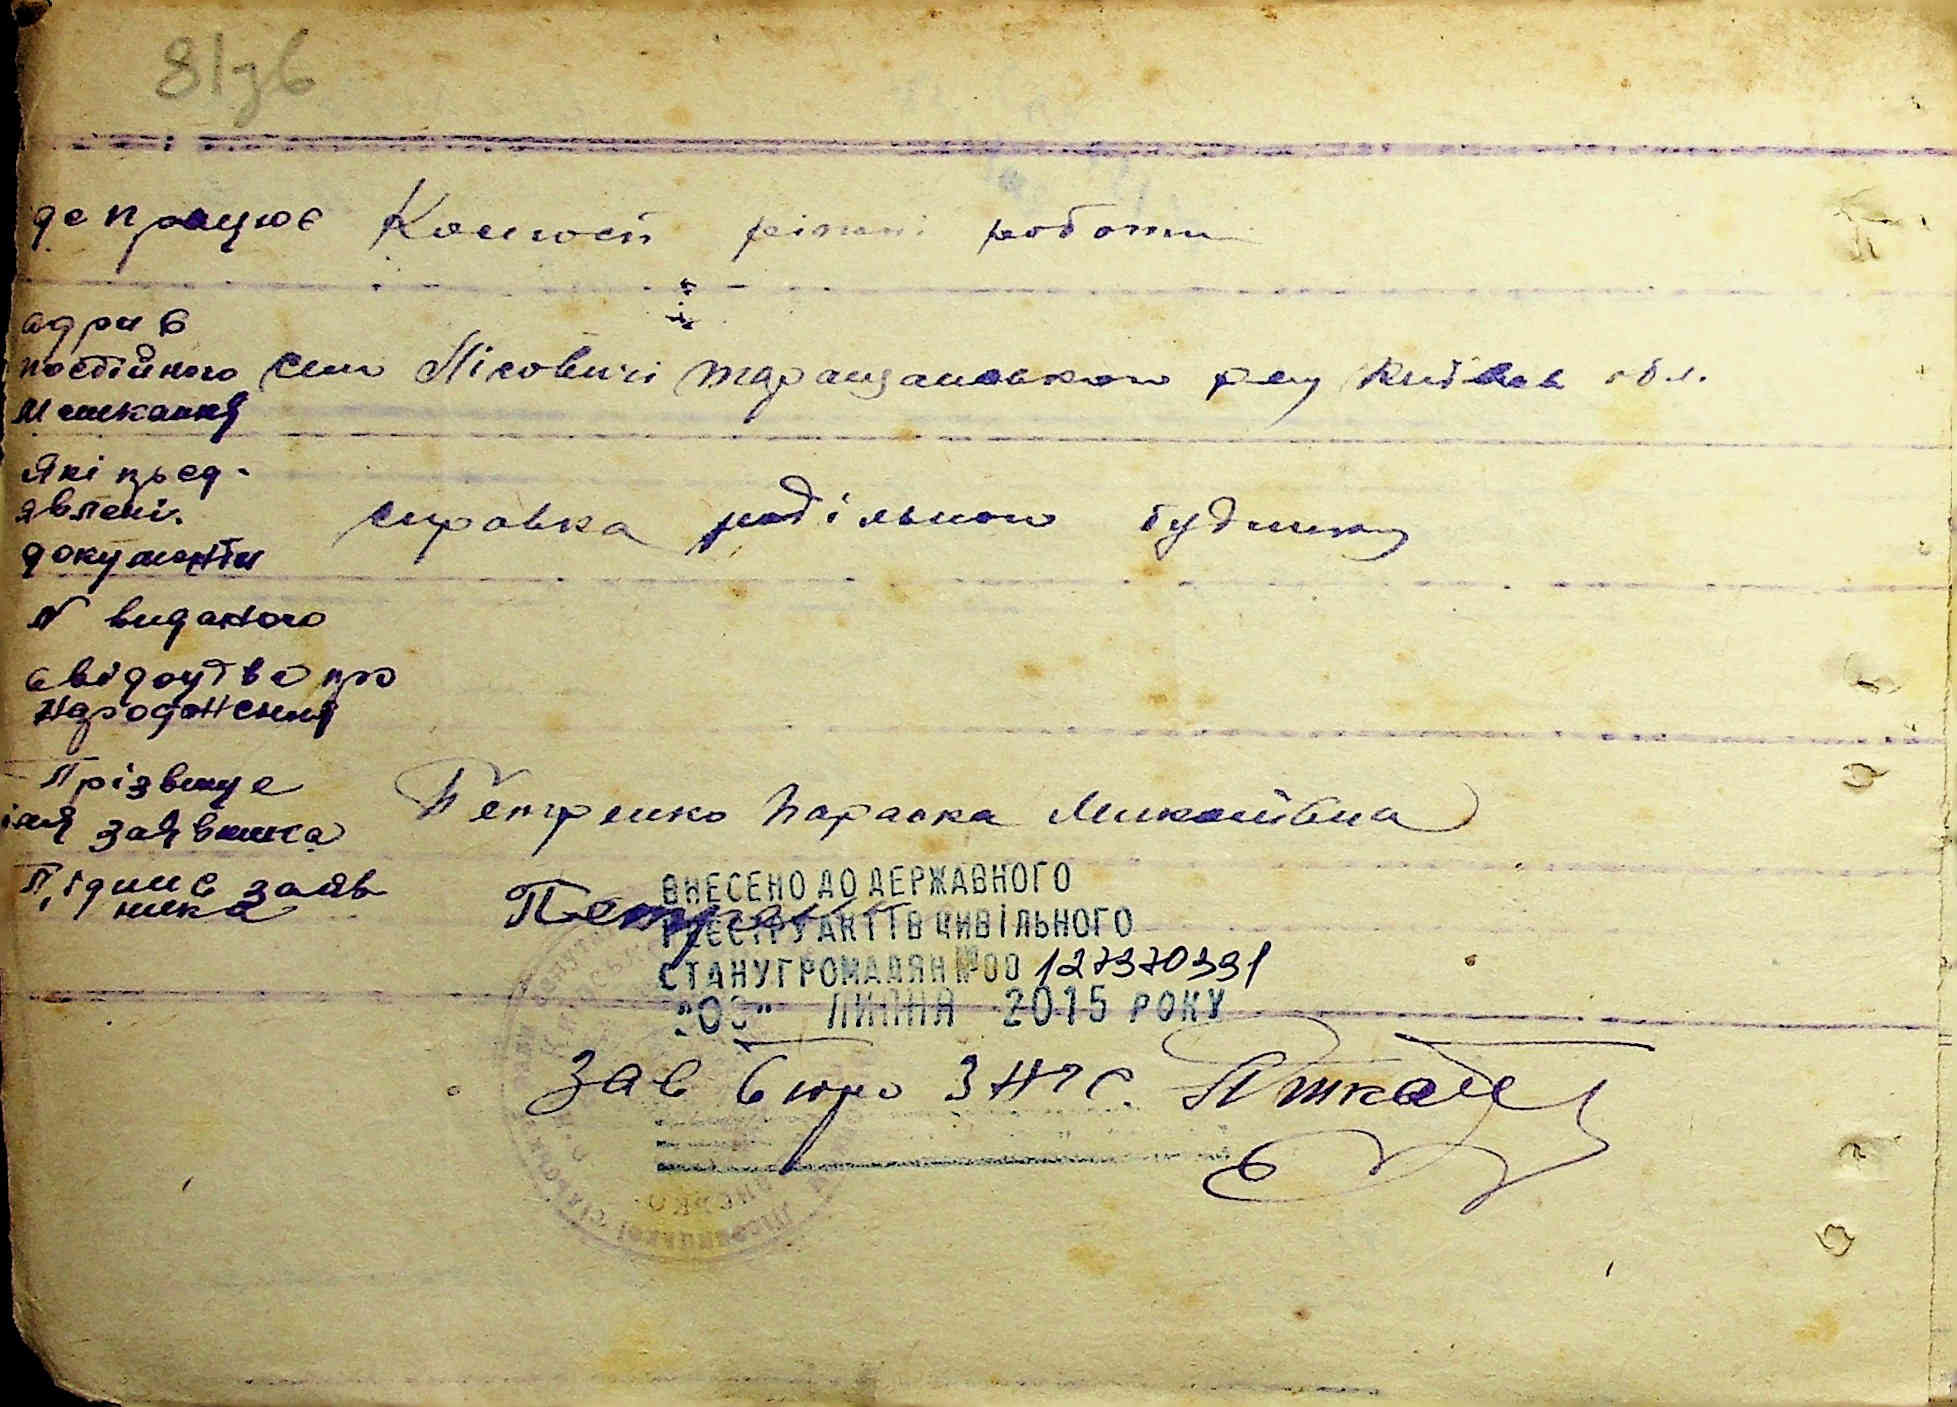 8/зв
де працює Колгосп різні роботи
адрис
постійного село Лісовичі Таращанського р-ну Київськ обл.
мешкання
Які прьед-
явлені
документи справка родільного будинку
N виданого
свідоцтва про
народження
Прізвище
імя заявника Петренко Параска Миколаївна
Підпис заяв
ника Петре
ВНЕСЕНО ДО ДЕРЖАВНОГО
РЕЄСТРУ АКТІВ ЦИВІЛЬНОГО
СТАНУ ГРОМАДЯН №00 127370391
ЛИПНЯ 2015 РОКУ
Зав бюро ЗАГС